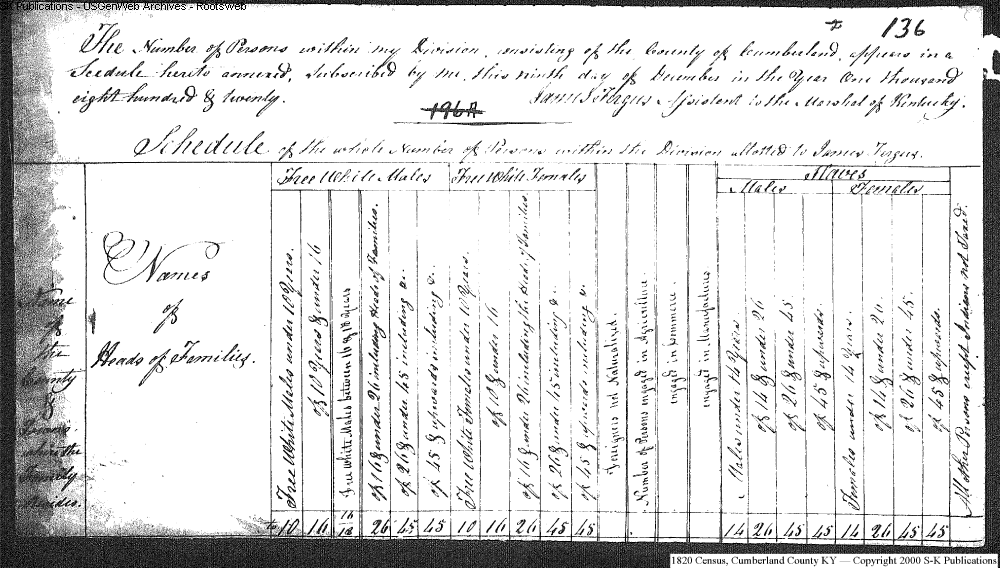 S-K Publications - USGenWeb Archives - Rootsweb
136
The Number of Persons within my Division, consisting of the County of Cumberland, appears in a
Scedule hereto annexed, Subscribed by me, this ninth day of December in the Year One thousand
eight hundred & twenty. James Fergus Assistent to the Marshal of Kentucky.
196A
Schedule of the whole Number of Persons within the Division Allotted to James Fergus.
Free White Males Free White Females Slaves
Males Females
Name of the County & Town where the Family Resides.
Names of Heads of Families.
Free White Males under 10 Years.
of 10 Years & under 16
Free White Males between 16 & 18 Years
of 16 & under 26 including Heads of Families.
of 26 & under 45 including &c.
of 45 & upwards including &c.
Free White Females under 10 Years.
of 10 & under 16
of 16 & under 26 including the Heads of Families
of 26 & under 45 including &c.
of 45 & upwards including &c.
Foreigners not Naturalized.
Number of Persons engaged in Agriculture
engaged in Commerce.
engaged in Manufactures
Males under 14 Years.
of 14 & under 26
of 26 & under 45
of 45 & upwards.
Females under 14 Years.
of 14 & under 26.
of 26 & under 45.
of 45 & upwards.
All other Persons except Indians not Taxed.
to 10 16 16/18 26 45 45 10 16 26 45 45 14 26 45 45 14 26 45 45
1820 Census, Cumberland County KY — Copyright 2000 S-K Publications